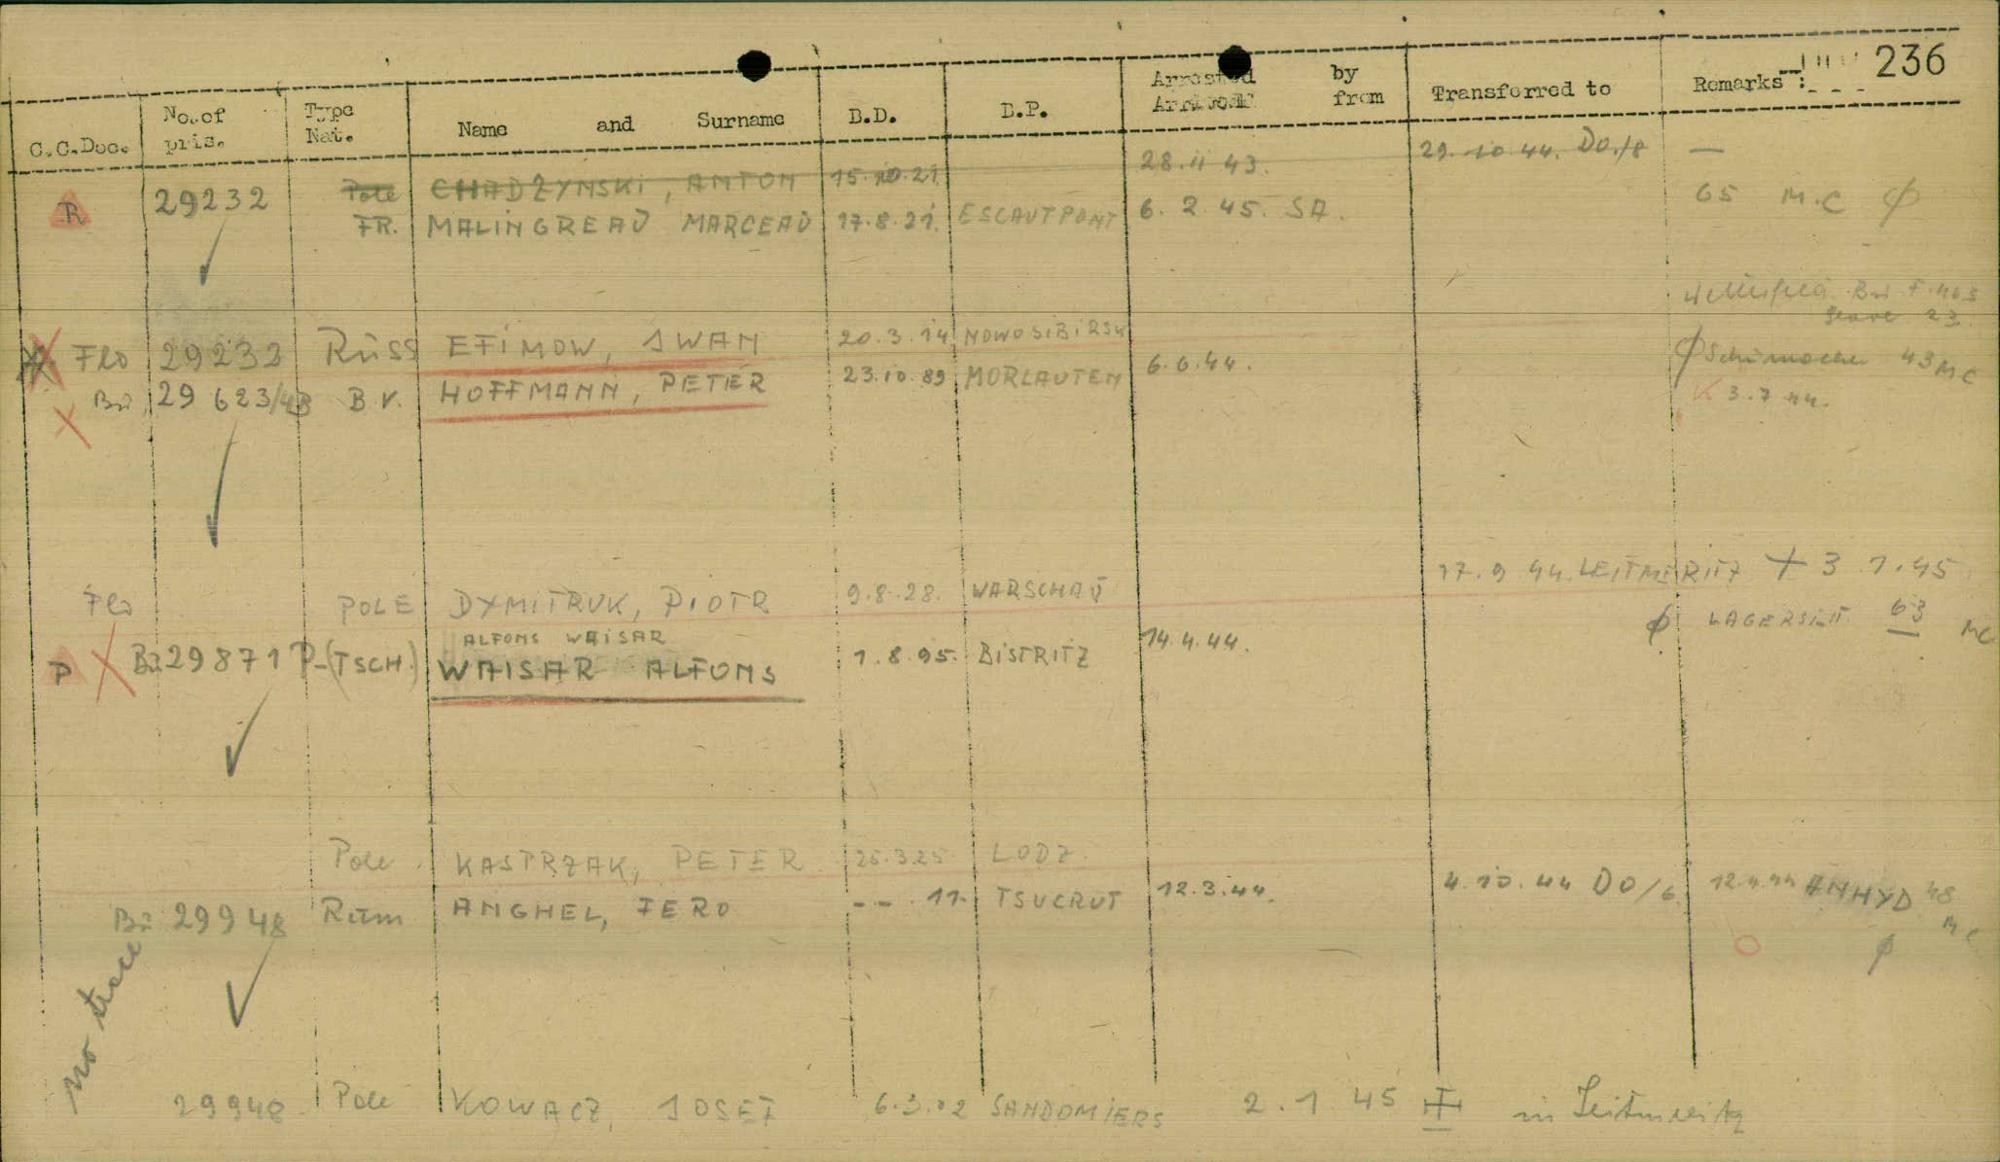 236
Arrested by
C.C.Doc. No.of pris. Type Nat. Name and Surname B.D. B.P. from Transferred to Remarks :
Pole CHADŻYNSKI, ANTON 15.10.21. 28.11 43. 29.10.44. DO./8 —
R 29232 FR. MALINGREAU MARCEAU 17.8.21. ESCAUTPONT 6. 2. 45. SA. 65 M.C ϕ
Flo 29233 Russ EFIMOW, IWAN 20.3.14 NOWOSIBIRSK
Bu 29 623/43 B V. HOFFMANN, PETER 23.10.89 MORLAUTEN 6.6.44. ϕ 43 MC
3.7 44.
Flo POLE DYMITRUK, PIOTR 9.8.28. WARSCHAU 17.9 44. LEITMERITZ + 3 1.45
ALFONS WAISAR
P Bu 29871 P-(TSCH.) WAISAR ALFONS 1.8.95. BISTRITZ 14.4.44. ϕ 63 MC
Pole KASTRZAK, PETER 25.3.25 LODZ.
Bu 29948 Rum ANGHEL, FERO -- . 11. TSUCRUT 12.3.44. 4.10.44 DO/6. 12.4.44 ANHYD 48 MC
ϕ
no trace
29948 Pole KOWACZ, JOSEF 6.3.02 SANDOMIERS 2.1 45 in Leitmeritz